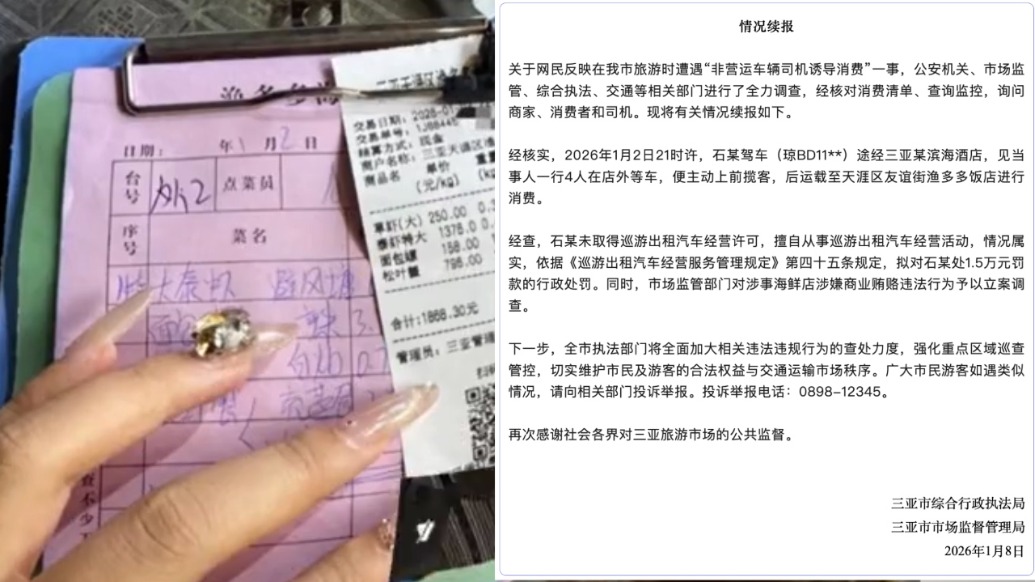 日期： 年1月2日
台号
外2
点菜员
序号
菜名
大泰虾 避风塘
白灼
三亚天涯区渔
交易日期：2026-01
交易单号：1J88445
结算方式：现金
商户名称：三亚天涯区渔
商品名 单价 重量
（元/kg） （kg
草虾(大) 250.00 0.
泰虾特大 1378.0 0.
面包螺 158.00
松叶蟹 798.00
合计:1868.30元
管理员：三亚管理
扫码
投诉
情况续报
关于网民反映在我市旅游时遭遇“非营运车辆司机诱导消费”一事，公安机关、市场监
管、综合执法、交通等相关部门进行了全力调查，经核对消费清单、查询监控，询问
商家、消费者和司机。现将有关情况续报如下。
经核实，2026年1月2日21时许，石某驾车（琼BD11**）途经三亚某滨海酒店，见当
事人一行4人在店外等车，便主动上前揽客，后运载至天涯区友谊街渔多多饭店进行
消费。
经查，石某未取得巡游出租汽车经营许可，擅自从事巡游出租汽车经营活动，情况属
实，依据《巡游出租汽车经营服务管理规定》第四十五条规定，拟对石某处1.5万元罚
款的行政处罚。同时，市场监管部门对涉事海鲜店涉嫌商业贿赂违法行为予以立案调
查。
下一步，全市执法部门将全面加大相关违法违规行为的查处力度，强化重点区域巡查
管控，切实维护市民及游客的合法权益与交通运输市场秩序。广大市民游客如遇类似
情况，请向相关部门投诉举报。投诉举报电话：0898-12345。
再次感谢社会各界对三亚旅游市场的公共监督。
三亚市综合行政执法局
三亚市市场监督管理局
2026年1月8日